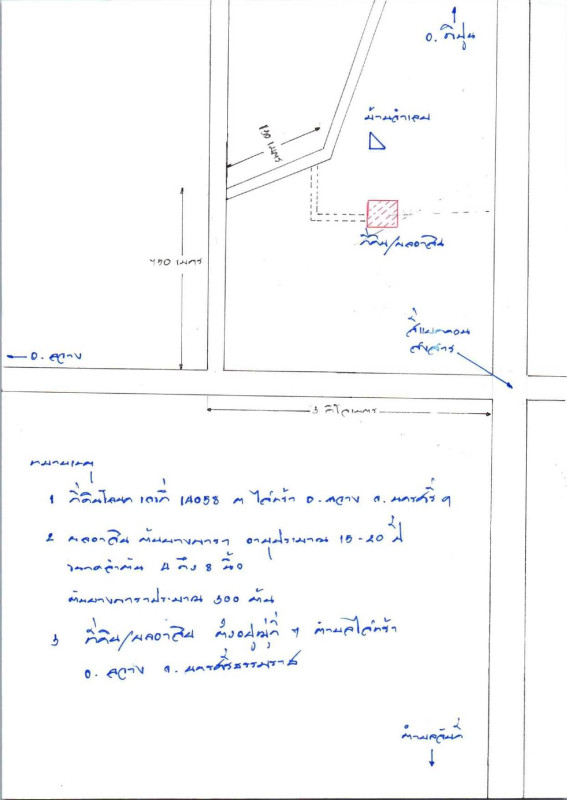 อ. ที่ปูน
บ้านลำเลม
150 เมตร
ที่ดิน/ผลอาสิน
750 เมตร
สี่แยกควน
สงสาร
อ. ฉวาง
3 กิโลเมตร
หมายเหตุ
1 ที่ดินโฉนด เลขที่ 14058 ต ไสหร้า อ. ฉวาง จ. นครศรี ฯ
2 ผลอาสิน ต้นยางพารา อายุประมาณ 15-20 ปี
ขนาดลำต้น 4 ถึง 8 นิ้ว
ต้นยางพาราประมาณ 300 ต้น
3 ที่ดิน/ผลอาสิน ตั้งอยู่หมู่ที่ ๆ ตำบลไสหร้า
อ. ฉวาง จ. นครศรีธรรมราช
ตำบล